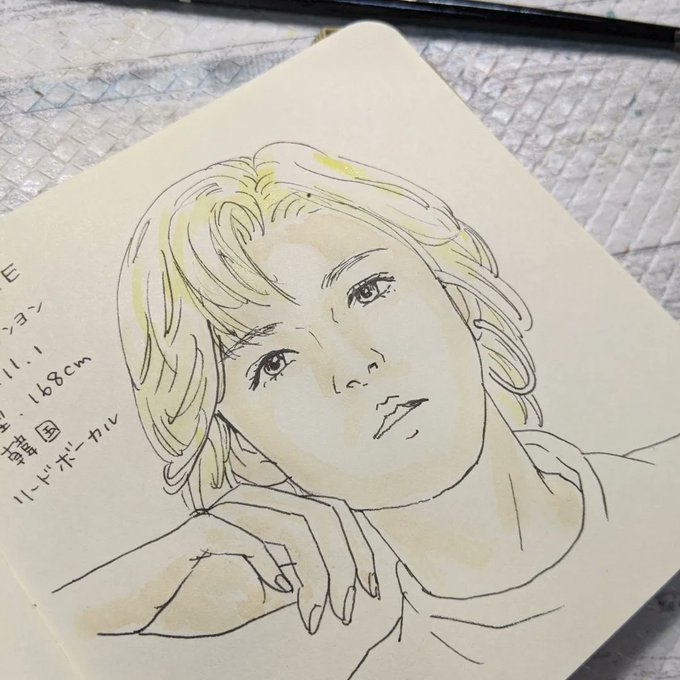 E
ンヨン
.11.1
型・168cm
韓国
リードボーカル